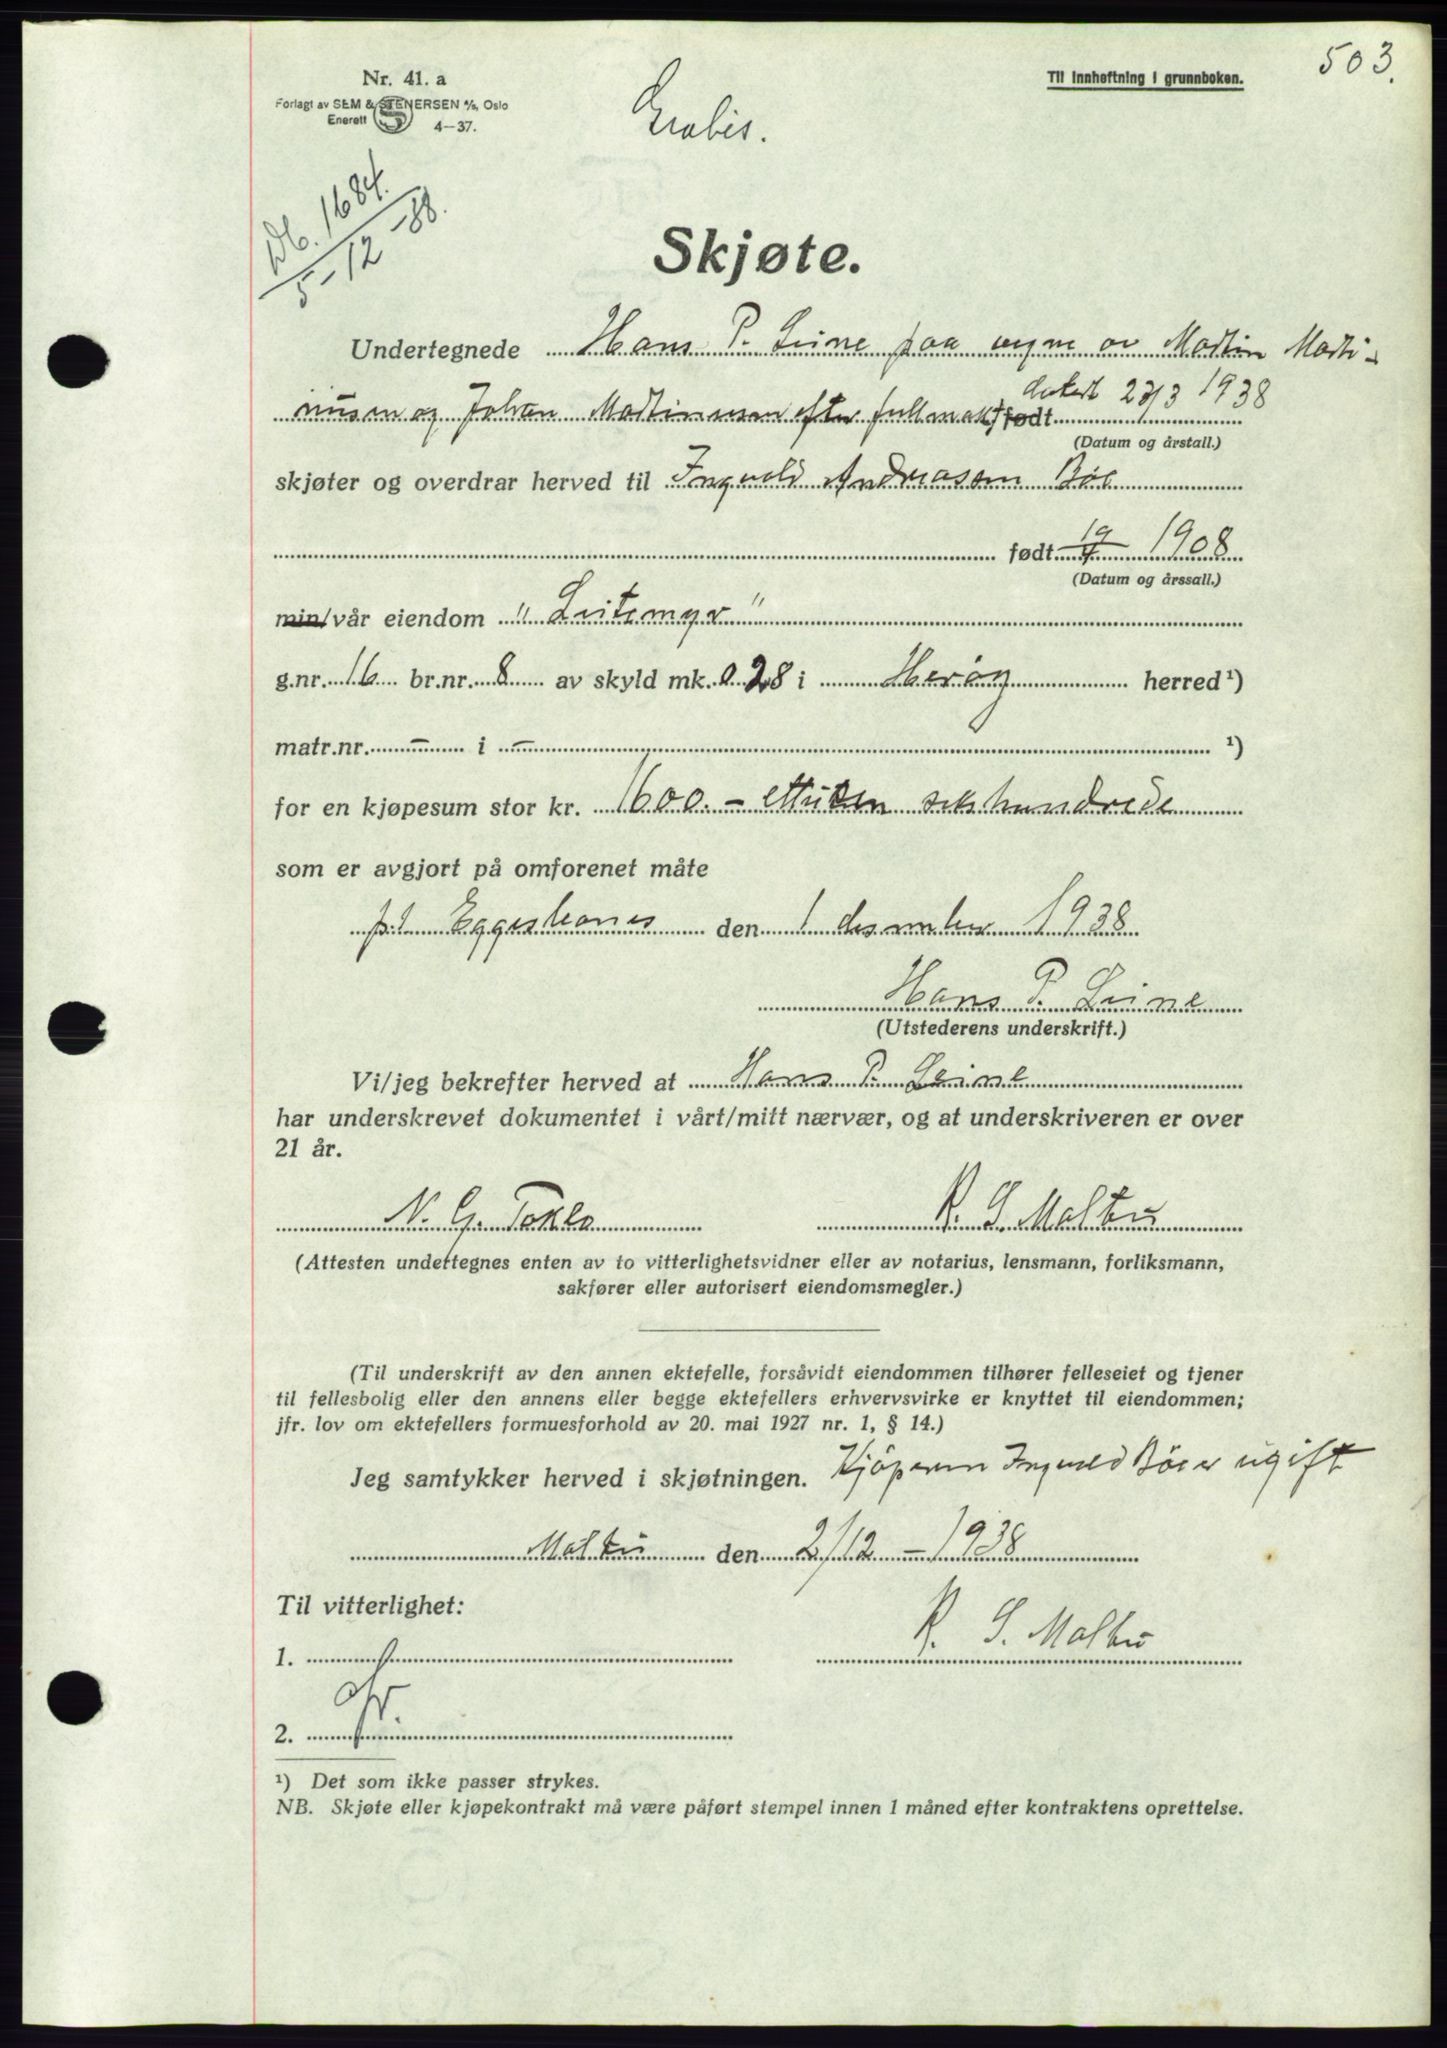 503.
Nr. 41. a
Til innheftning i grunnboken.
Forlagt av SEM & STENERSEN A/S, Oslo
Enerett 4—37.
Grabis.
Db. 1684.
5-12-38.
Skjøte.
Undertegnede Hans P. Leine paa vegne av Martin Marti-
nusen og Johan Martinussen efter fullmakt født datert 23/3 1938
(Datum og årstall.)
skjøter og overdrar herved til Ingvald Andreasen Böe
født 19/4 1908
(Datum og årssall.)
min/vår eiendom "Leitemyr"
g.nr. 16 br.nr. 8 av skyld mk. 0.28 i Heröy herred ¹)
matr.nr. — i — ¹)
for en kjøpesum stor kr. 1600.- ettusen sekshundrede
som er avgjort på omforenet måte
p.t. Eggesbønes den 1 desember 1938
Hans P. Leine
(Utstederens underskrift.)
Vi/jeg bekrefter herved at Hans P. Leine
har underskrevet dokumentet i vårt/mitt nærvær, og at underskriveren er over
21 år.
N. G. R. S. Maltu
(Attesten undertegnes enten av to vitterlighetsvidner eller av notarius, lensmann, forliksmann,
sakfører eller autorisert eiendomsmegler.)
(Til underskrift av den annen ektefelle, forsåvidt eiendommen tilhører felleseiet og tjener
til fellesbolig eller den annens eller begge ektefellers erhvervsvirke er knyttet til eiendommen;
jfr. lov om ektefellers formuesforhold av 20. mai 1927 nr. 1, § 14.)
Jeg samtykker herved i skjøtningen. Kjöperen Ingvald Böe er ugift
Maltu den 2/12 - 1938
Til vitterlighet:
R. S. Maltu
1.
2.
¹) Det som ikke passer strykes.
NB. Skjøte eller kjøpekontrakt må være påført stempel innen 1 måned efter kontraktens oprettelse.